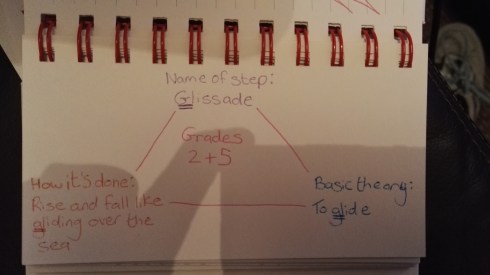 Name of step:
Glissade
Grades
2+5
How it's done:
Rise and fall like
gliding over the
sea
Basic theory:
To glide